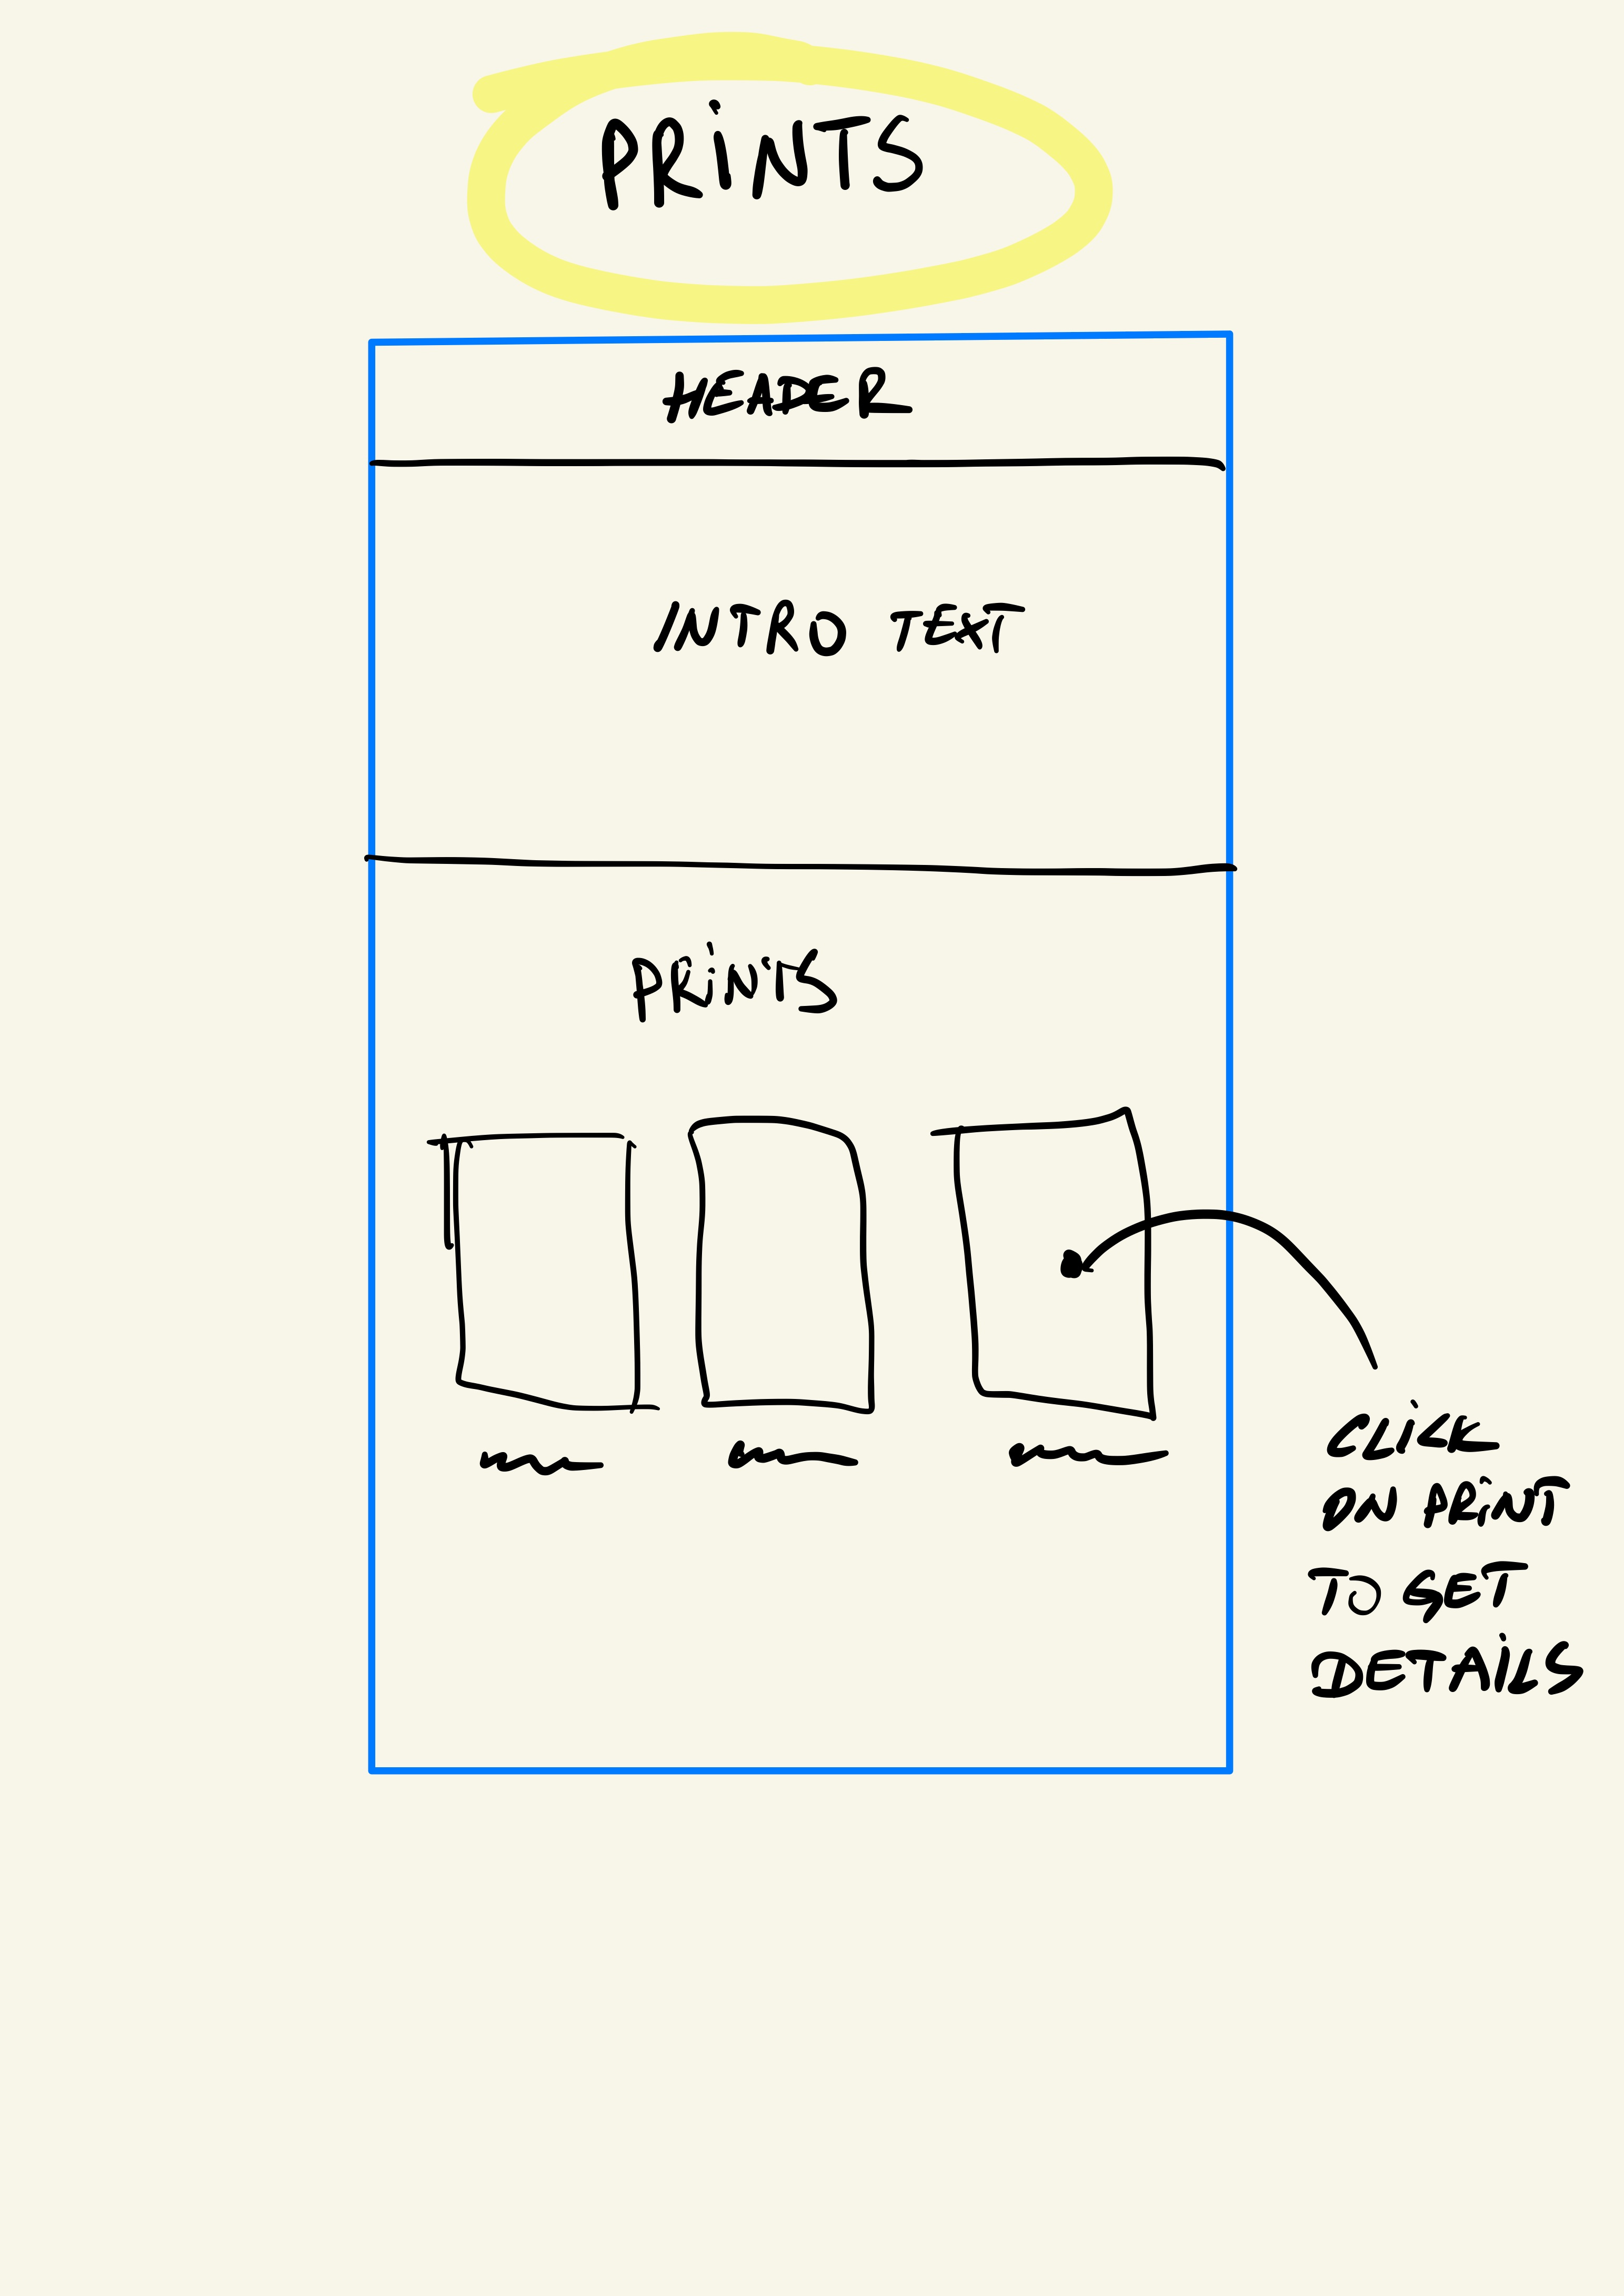 PRiNTS
HEADER
INTRO TEXT
PRiNTS
CLiCK
ON PRiNT
TO GET
DETAiLS